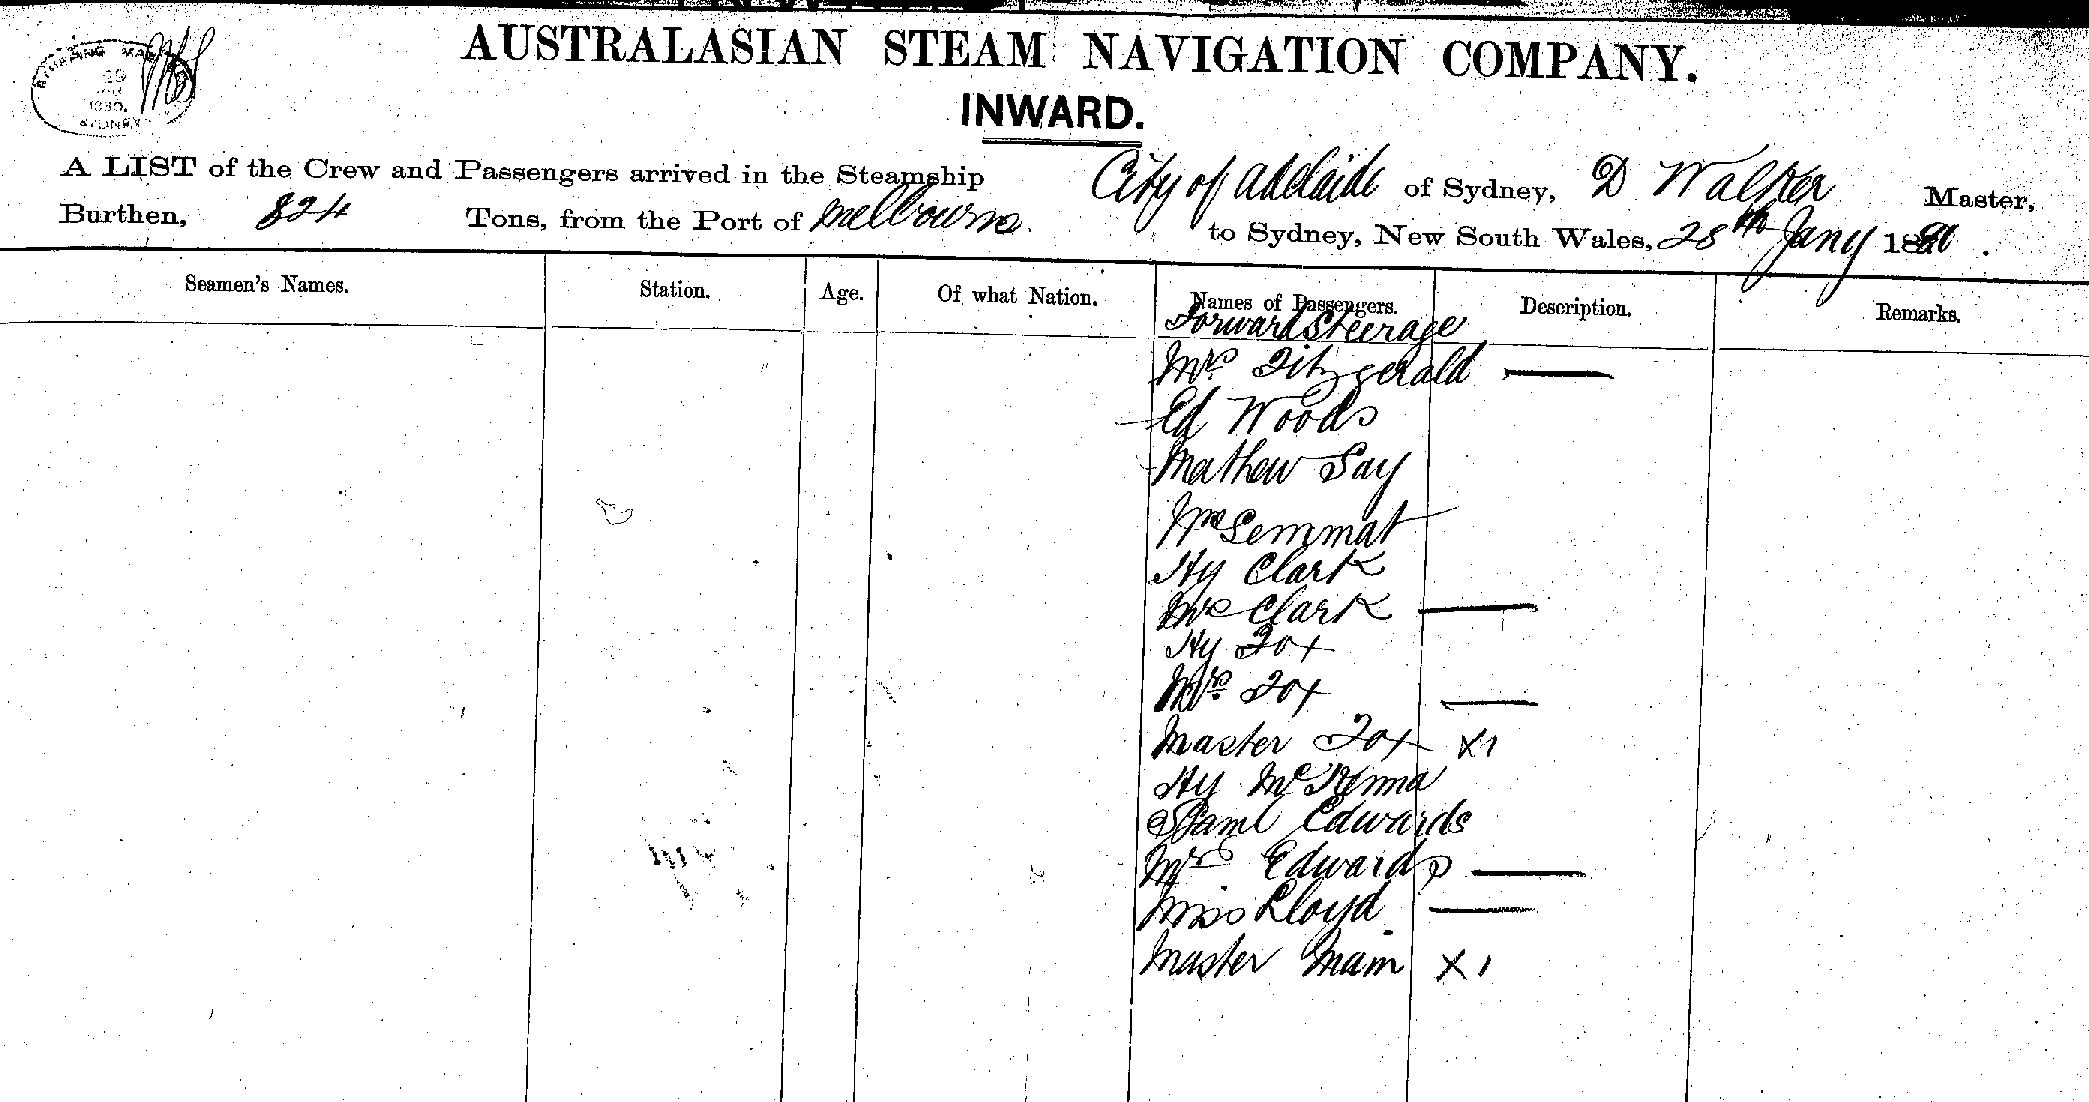 SHIPPING MASTER
1880.
SYDNEY
AUSTRALASIAN STEAM NAVIGATION COMPANY.
INWARD.
A LIST of the Crew and Passengers arrived in the Steamship City of Adelaide of Sydney, D Walker Master,
Burthen, 824 Tons, from the Port of Melbourne. to Sydney, New South Wales, 28th Jany 1880.
Seamen's Names. Station. Age. Of what Nation. Names of Passengers. Description. Remarks.
Forward Steerage
Mrs Fitzgerald —
Ed Woods
Mathew Say
Hy Clark
Mrs Clark —
Hy Fox
Mrs Fox —
Master Fox X1
Hy McKenna
Saml Edwards
Mrs Edwards —
Miss Lloyd —
Master Mam X1